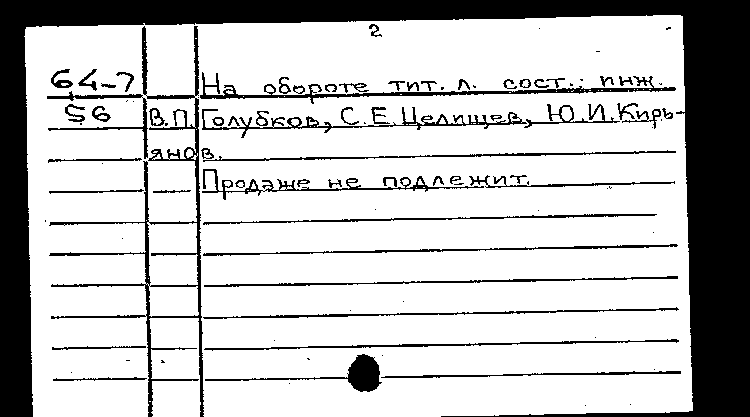 2
64-7 На обороте тит. л. сост.: инж.
56 В.П. Голубков, С.Е. Целищев, Ю.И. Кирь-
янов.
Продаже не подлежит.